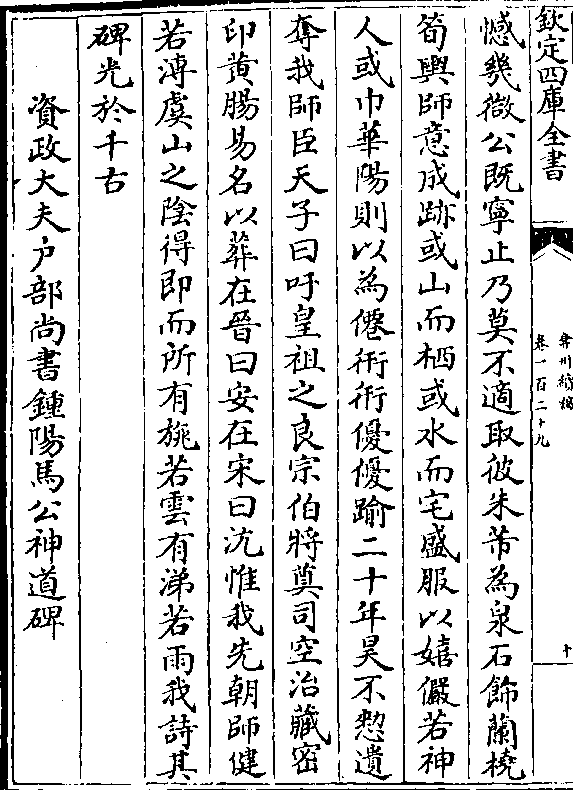 欽定四庫全書
弇州續稿
卷一百二十九
十
憾幾微公既寧止乃莫不適取彼朱芾為泉石飾蘭橈
筍輿師意成跡或山而栖或水而宅盛服以嬉儼若神
人或巾華陽則以為僊衎衎優優踰二十年昊不憗遺
奪我師臣天子曰吁皇祖之良宗伯將奠司空治藏密
印黄腸易名以葬在晉曰安在宋曰沆惟我先朝師健
若溥虞山之陰得即而所有旐若雲有涕若雨我詩其
碑光於千古
資政大夫户部尚書鍾陽馬公神道碑